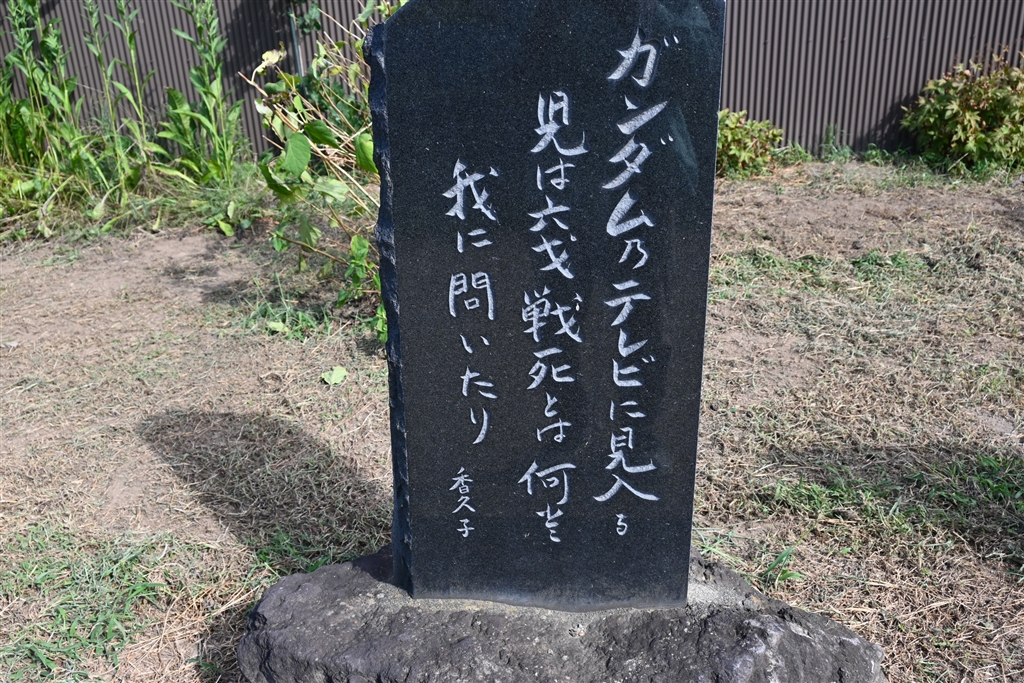 ガンダム乃テレビに見入る
児は六才戦死とは何そと
我に問いたり
香久子